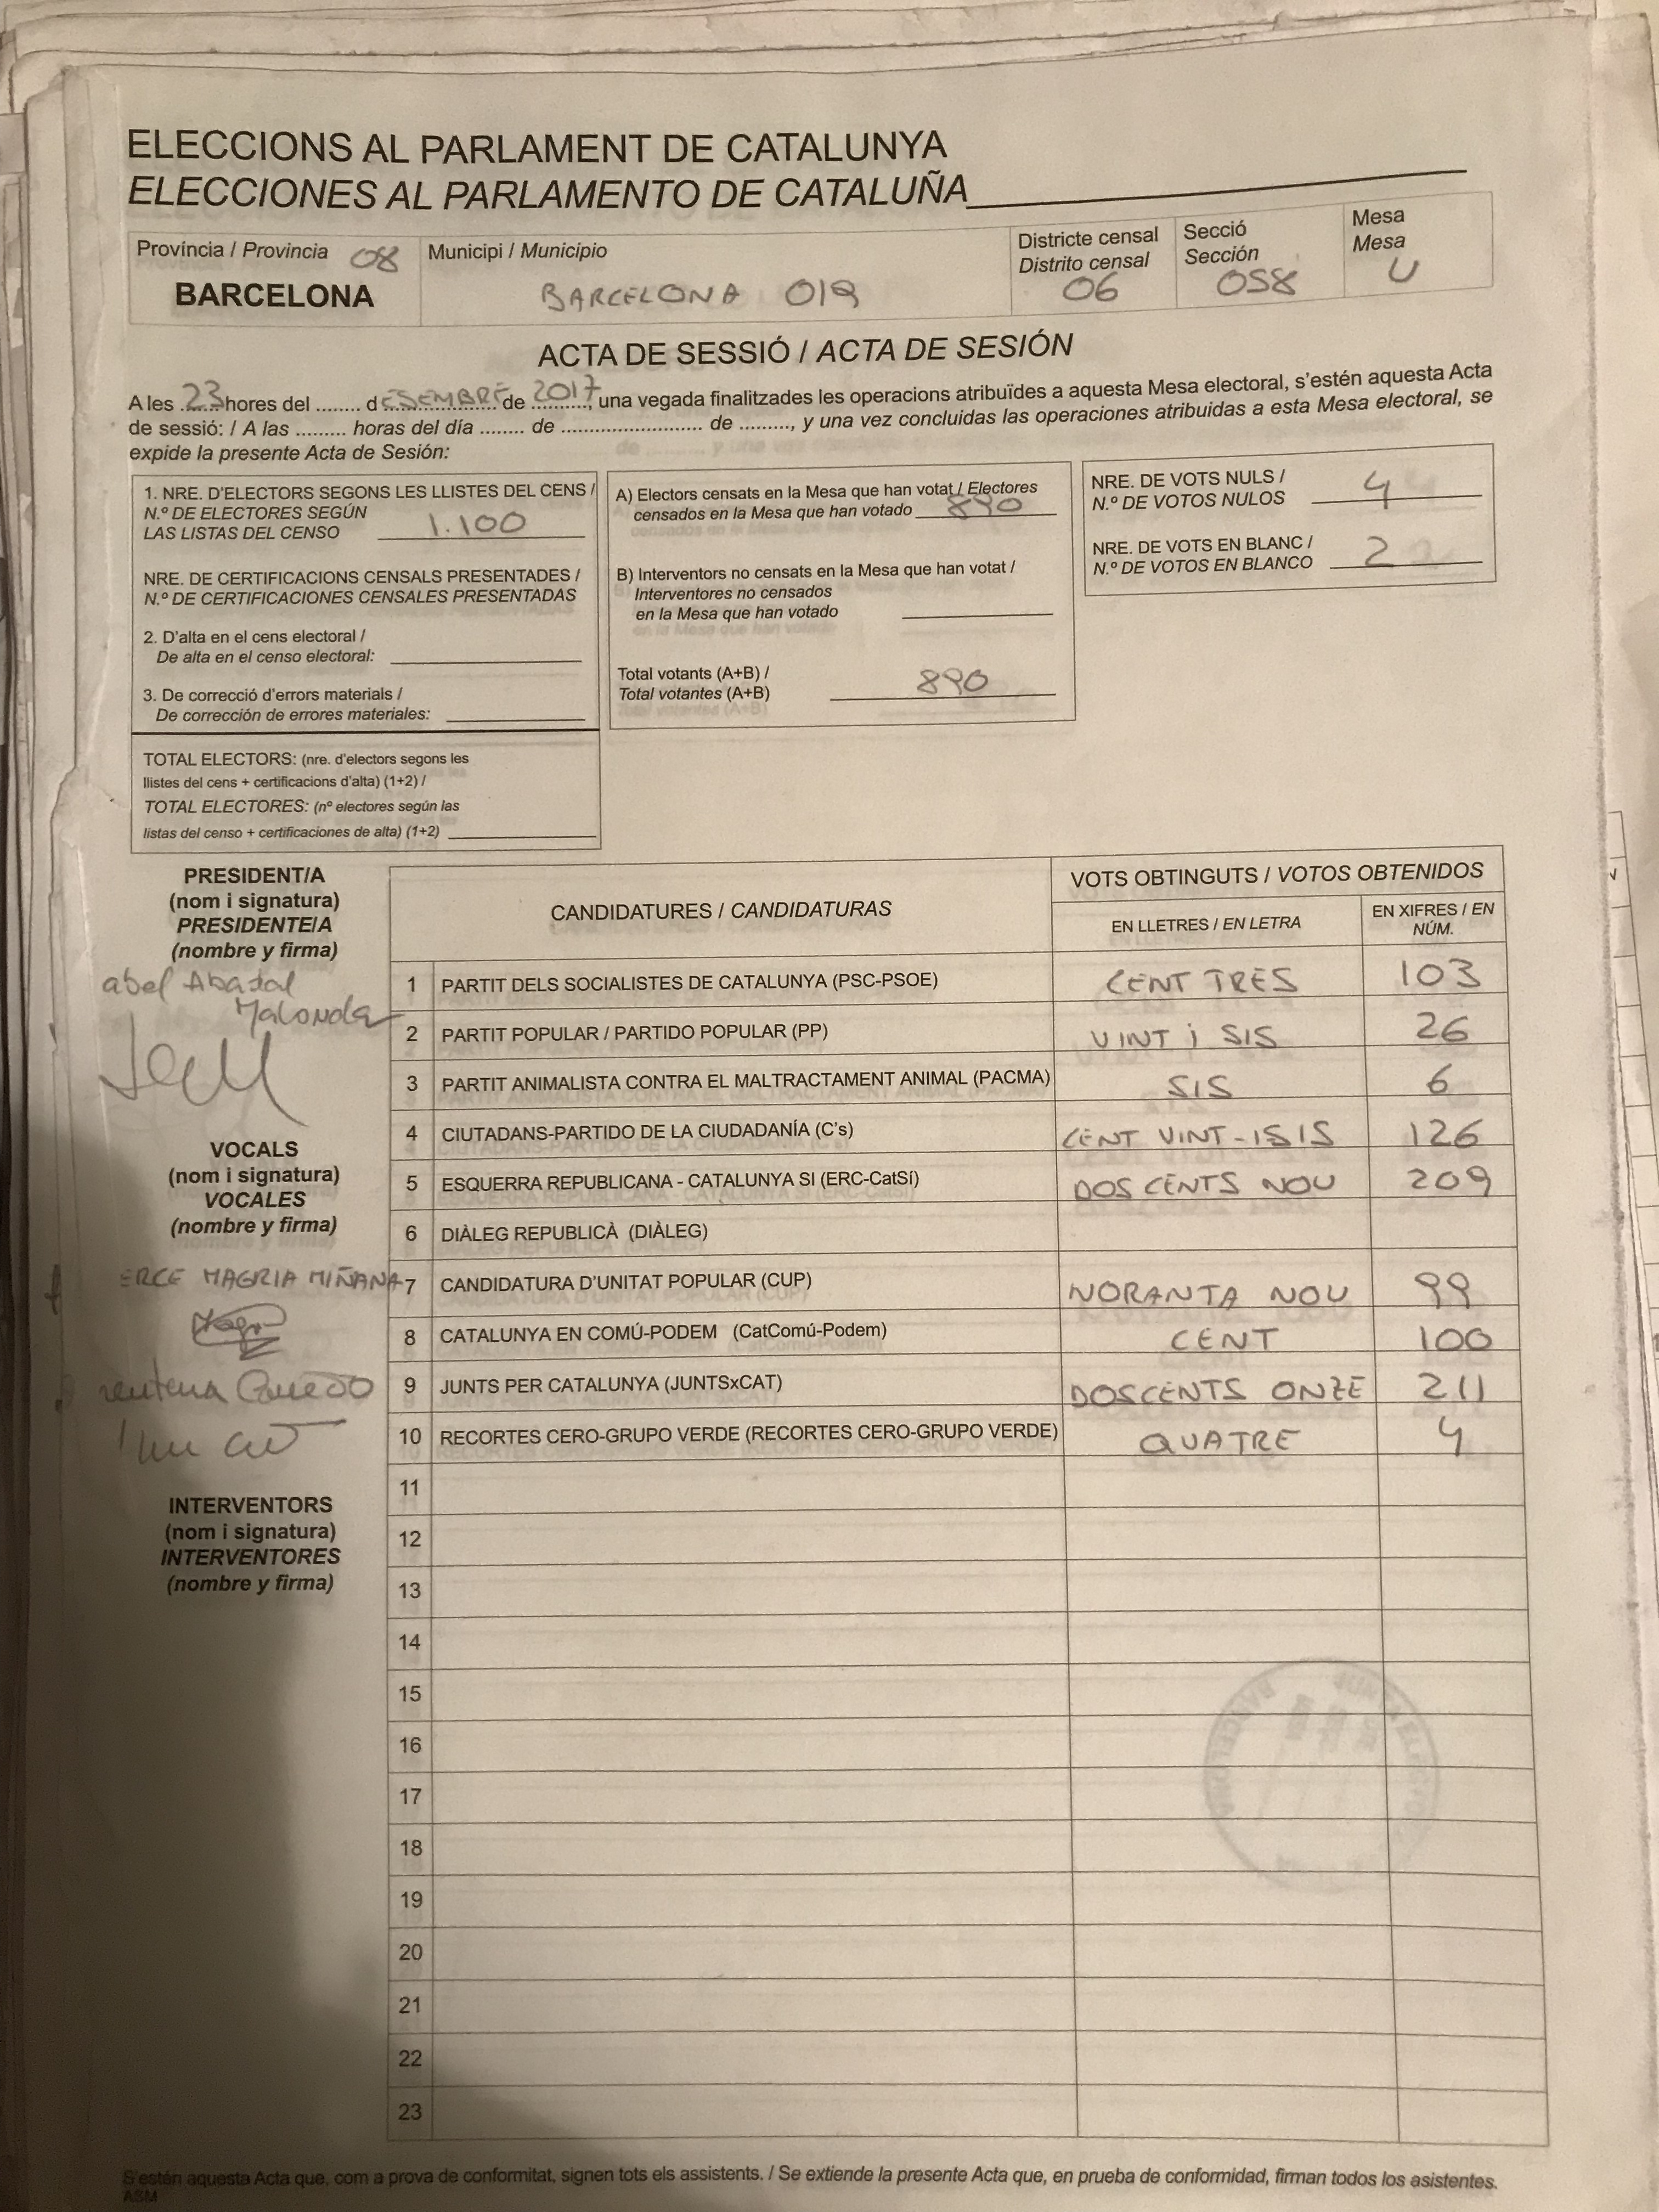 ELECCIONS AL PARLAMENT DE CATALUNYA
ELECCIONES AL PARLAMENTO DE CATALUÑA
Província / Provincia 08
BARCELONA
Municipi / Municipio
BARCELONA 019
Districte censal
Distrito censal
06
Secció
Sección
058
Mesa
Mesa
U
ACTA DE SESSIÓ / ACTA DE SESIÓN
A les 23 hores del ........ dESEMBRE de 2017, una vegada finalitzades les operacions atribuïdes a aquesta Mesa electoral, s'estén aquesta Acta
de sessió: / A las ......... horas del día ........ de ....................... de ........., y una vez concluidas las operaciones atribuidas a esta Mesa electoral, se
expide la presente Acta de Sesión:
1. NRE. D'ELECTORS SEGONS LES LLISTES DEL CENS /
N.º DE ELECTORES SEGÚN
LAS LISTAS DEL CENSO 1.100
NRE. DE CERTIFICACIONS CENSALS PRESENTADES /
N.º DE CERTIFICACIONES CENSALES PRESENTADAS
2. D'alta en el cens electoral /
De alta en el censo electoral:
3. De correcció d'errors materials /
De corrección de errores materiales:
TOTAL ELECTORS: (nre. d'electors segons les
llistes del cens + certificacions d'alta) (1+2) /
TOTAL ELECTORES: (nº electores según las
listas del censo + certificaciones de alta) (1+2)
A) Electors censats en la Mesa que han votat / Electores
censados en la Mesa que han votado 890
B) Interventors no censats en la Mesa que han votat /
Interventores no censados
en la Mesa que han votado
Total votants (A+B) /
Total votantes (A+B) 890
NRE. DE VOTS NULS /
N.º DE VOTOS NULOS 4
NRE. DE VOTS EN BLANC /
N.º DE VOTOS EN BLANCO 2
PRESIDENT/A
(nom i signatura)
PRESIDENTE/A
(nombre y firma)
abel Abadal
Malonda
VOCALS
(nom i signatura)
VOCALES
(nombre y firma)
ERCE MAGRIA MIÑANA
INTERVENTORS
(nom i signatura)
INTERVENTORES
(nombre y firma)
CANDIDATURES / CANDIDATURAS
VOTS OBTINGUTS / VOTOS OBTENIDOS
EN LLETRES / EN LETRA
EN XIFRES / EN
NÚM.
1 PARTIT DELS SOCIALISTES DE CATALUNYA (PSC-PSOE) CENT TRES 103
2 PARTIT POPULAR / PARTIDO POPULAR (PP) VINT i SIS 26
3 PARTIT ANIMALISTA CONTRA EL MALTRACTAMENT ANIMAL (PACMA) SIS 6
4 CIUTADANS-PARTIDO DE LA CIUDADANÍA (C's) CENT VINT-ISIS 126
5 ESQUERRA REPUBLICANA - CATALUNYA SI (ERC-CatSí) DOS CENTS NOU 209
6 DIÀLEG REPUBLICÀ (DIÀLEG)
7 CANDIDATURA D'UNITAT POPULAR (CUP) NORANTA NOU 99
8 CATALUNYA EN COMÚ-PODEM (CatComú-Podem) CENT 100
9 JUNTS PER CATALUNYA (JUNTSxCAT) DOSCENTS ONZE 211
10 RECORTES CERO-GRUPO VERDE (RECORTES CERO-GRUPO VERDE) QUATRE 4
11
12
13
14
15
16
17
18
19
20
21
22
23
S'estén aquesta Acta que, com a prova de conformitat, signen tots els assistents. / Se extiende la presente Acta que, en prueba de conformidad, firman todos los asistentes.
ASM